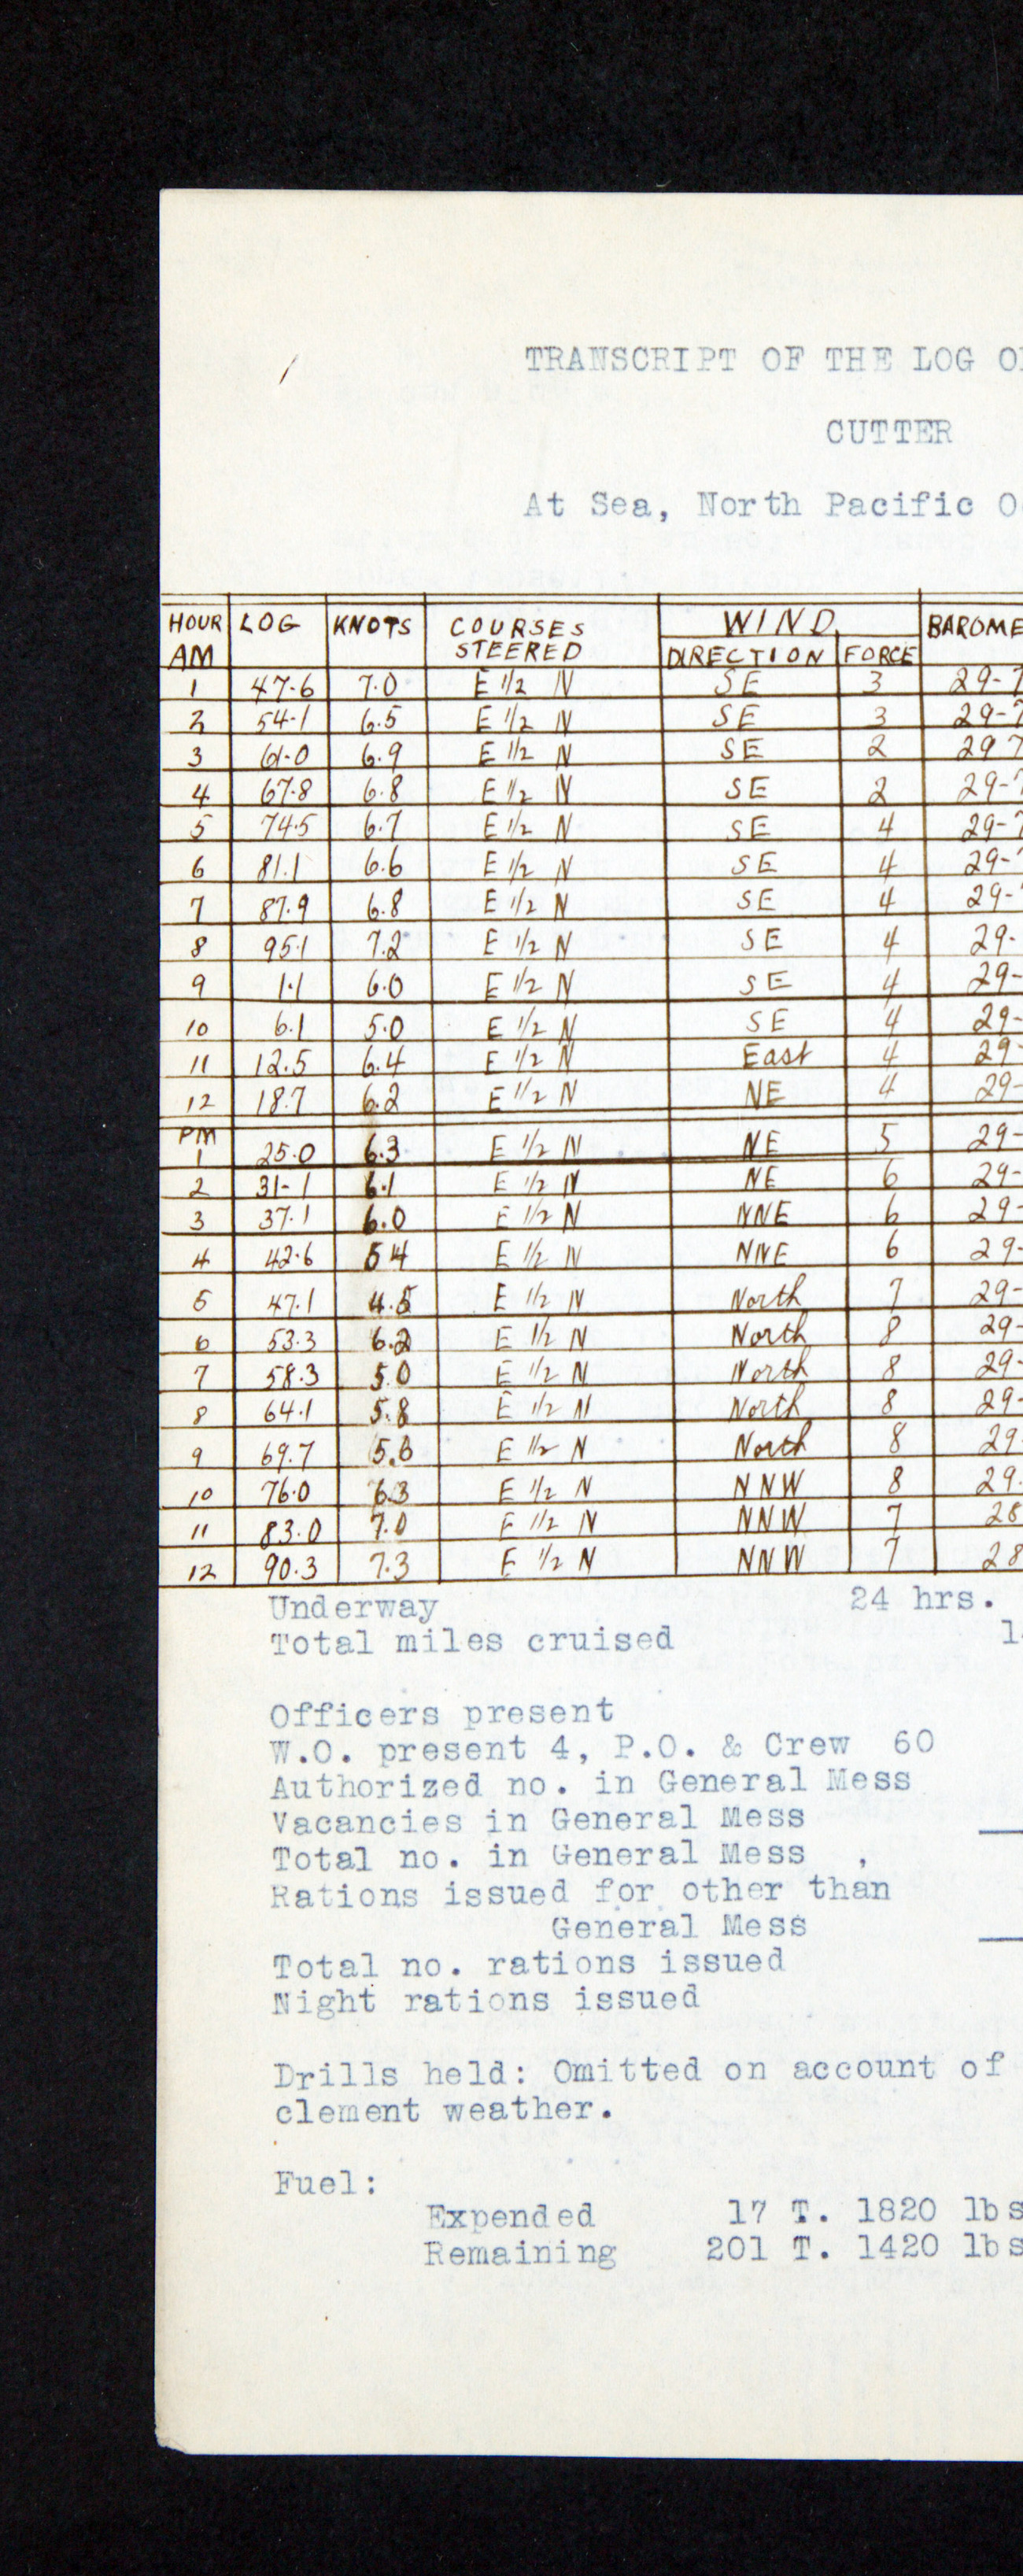 TRANSCRIPT OF THE LOG O
CUTTER
At Sea, North Pacific O
HOUR LOG KNOTS COURSES STEERED WIND BAROME
AM DIRECTION FORCE
1 47.6 7.0 E 1/2 N SE 3 29-7
2 54-1 6.5 E 1/2 N SE 3 29-7
3 61-0 6.9 E 1/2 N SE 2 29 7
4 67.8 6.8 E 1/2 N SE 2 29-7
5 74.5 6.7 E 1/2 N SE 4 29-7
6 81.1 6.6 E 1/2 N SE 4 29-
7 87.9 6.8 E 1/2 N SE 4 29-
8 95.1 7.2 E 1/2 N SE 4 29-
9 1.1 6.0 E 1/2 N SE 4 29-
10 6.1 5.0 E 1/2 N SE 4 29-
11 12.5 6.4 E 1/2 N East 4 29-
12 18.7 6.2 E 1/2 N NE 4 29-
PM
1 25.0 6.3 E 1/2 N NE 5 29-
2 31-1 6.1 E 1/2 N NE 6 29-
3 37.1 6.0 E 1/2 N NNE 6 29-
4 42.6 5 4 E 1/2 N NNE 6 29-
5 47.1 4.5 E 1/2 N North 7 29-
6 53.3 6.2 E 1/2 N North 8 29-
7 58.3 5.0 E 1/2 N North 8 29-
8 64.1 5.8 E 1/2 N North 8 29-
9 69.7 5.6 E 1/2 N North 8 29
10 76.0 6.3 E 1/2 N NNW 8 29.
11 83.0 7.0 E 1/2 N NNW 7 28
12 90.3 7.3 E 1/2 N NNW 7 28
Underway 24 hrs.
Total miles cruised 1
Officers present
W.O. present 4, P.O. & Crew 60
Authorized no. in General Mess
Vacancies in General Mess
Total no. in General Mess ,
Rations issued for other than
General Mess
Total no. rations issued
Night rations issued
Drills held: Omitted on account of
clement weather.
Fuel:
Expended 17 T. 1820 lbs
Remaining 201 T. 1420 lbs